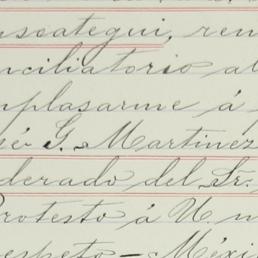 nsoategui, ren
nciliatorio al
mplasarme á
sé G. Martinez
derado del Sr.
Protesto á Un
espeto - Méxi